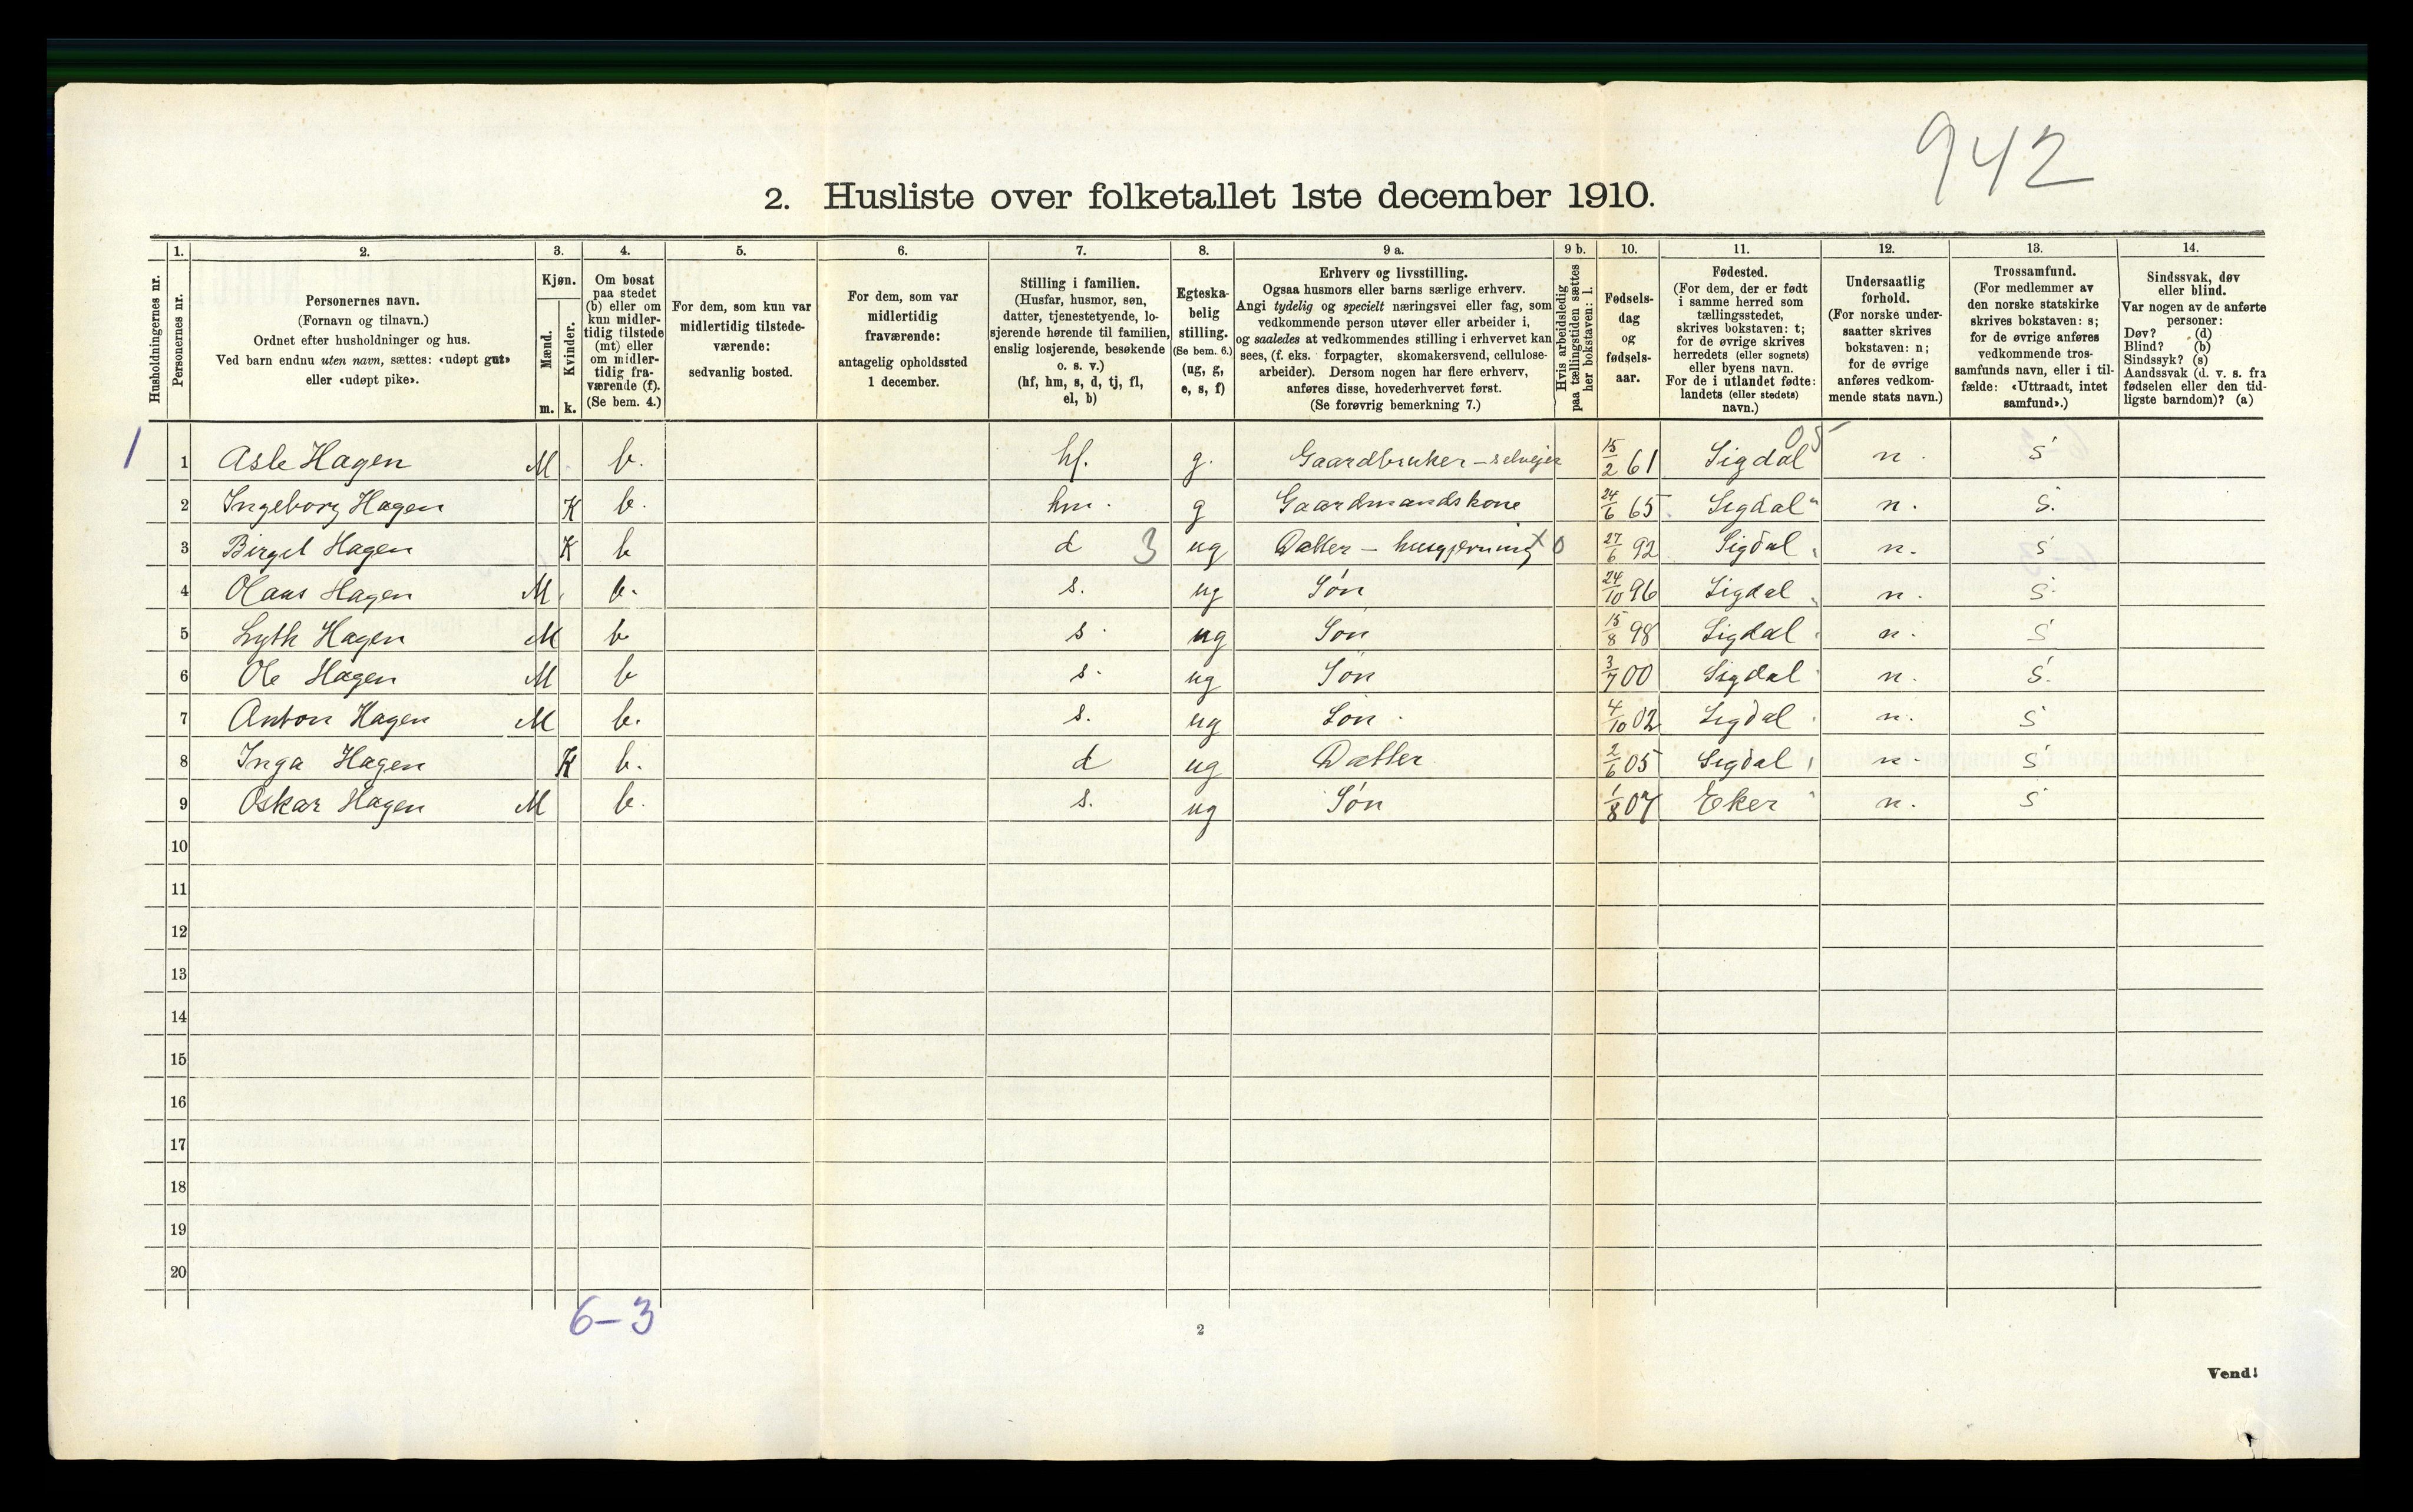 942
2. Husliste over folketallet 1ste december 1910.
Husholdningernes nr.
1. Personernes nr.
2. Personernes navn.
(Fornavn og tilnavn.)
Ordnet efter husholdninger og hus.
Ved barn endnu uten navn, sættes: «udøpt gut»
eller «udøpt pike».
3. Kjøn.
Mænd. m.
Kvinder. k.
4. Om bosat
paa stedet
(b) eller om
kun midler-
tidig tilstede
(mt) eller
om midler-
tidig fra-
værende (f).
(Se bem. 4.)
5. For dem, som kun var
midlertidig tilstede-
værende:
sedvanlig bosted.
6. For dem, som var
midlertidig
fraværende:
antagelig opholdssted
1 december.
7. Stilling i familien.
(Husfar, husmor, søn,
datter, tjenestetyende, lo-
sjerende hørende til familien,
enslig losjerende, besøkende
o. s. v.)
(hf, hm, s, d, tj, fl,
el, b)
8. Egteska-
belig
stilling.
(Se bem. 6.)
(ug, g,
e, s, f)
9 a. Erhverv og livsstilling.
Ogsaa husmors eller barns særlige erhverv.
Angi tydelig og specielt næringsvei eller fag, som
vedkommende person utøver eller arbeider i,
og saaledes at vedkommendes stilling i erhvervet kan
sees, (f. eks. forpagter, skomakersvend, cellulose-
arbeider). Dersom nogen har flere erhverv,
anføres disse, hovederhvervet først.
(Se forøvrig bemerkning 7.)
9 b. Hvis arbeidsledig
paa tællingstiden sættes
her bokstaven: l.
10. Fødsels-
dag
og
fødsels-
aar.
11. Fødested.
(For dem, der er født
i samme herred som
tællingsstedet,
skrives bokstaven: t;
for de øvrige skrives
herredets (eller sognets)
eller byens navn.
For de i utlandet fødte:
landets (eller stedets)
navn.)
12. Undersaatlig
forhold.
(For norske under-
saatter skrives
bokstaven: n;
for de øvrige
anføres vedkom-
mende stats navn.)
13. Trossamfund.
(For medlemmer av
den norske statskirke
skrives bokstaven: s;
for de øvrige anføres
vedkommende tros-
samfunds navn, eller i til-
fælde: «Uttraadt, intet
samfund».)
14. Sindssvak, døv
eller blind.
Var nogen av de anførte
personer:
Døv? (d)
Blind? (b)
Sindssyk? (s)
Aandssvak (d. v. s. fra
fødselen eller den tid-
ligste barndom)? (a)
1 1 Asle Hagen M b. hf. g. Gaardbruker – selvejer 15/2 61 Sigdal 05 n. s
2 Ingeborg Hagen K b. hm. g Gaardmandskone 24/6 65 Sigdal " n. s.
3 Birgit Hagen K b d 3 ug Datter – husgjerning x 0 27/6 92 Sigdal n. s
4 Olaus Hagen M b. s. ug Søn 24/10 96 Sigdal n. s.
5 Lyth Hagen M b s. ug Søn 15/8 98 Sigdal n. s
6 Ole Hagen M b s. ug Søn 3/7 00 Sigdal n. s.
7 Anton Hagen M b. s. ug Søn. 4/10 02 Sigdal n. s
8 Inga Hagen K b. d ug Datter 2/6 05 Sigdal n. s
9 Oskar Hagen M b. s. ug Søn 1/8 07 Eker n. s
10
11
12
13
14
15
16
17
18
19
20
6–3
2
Vend!